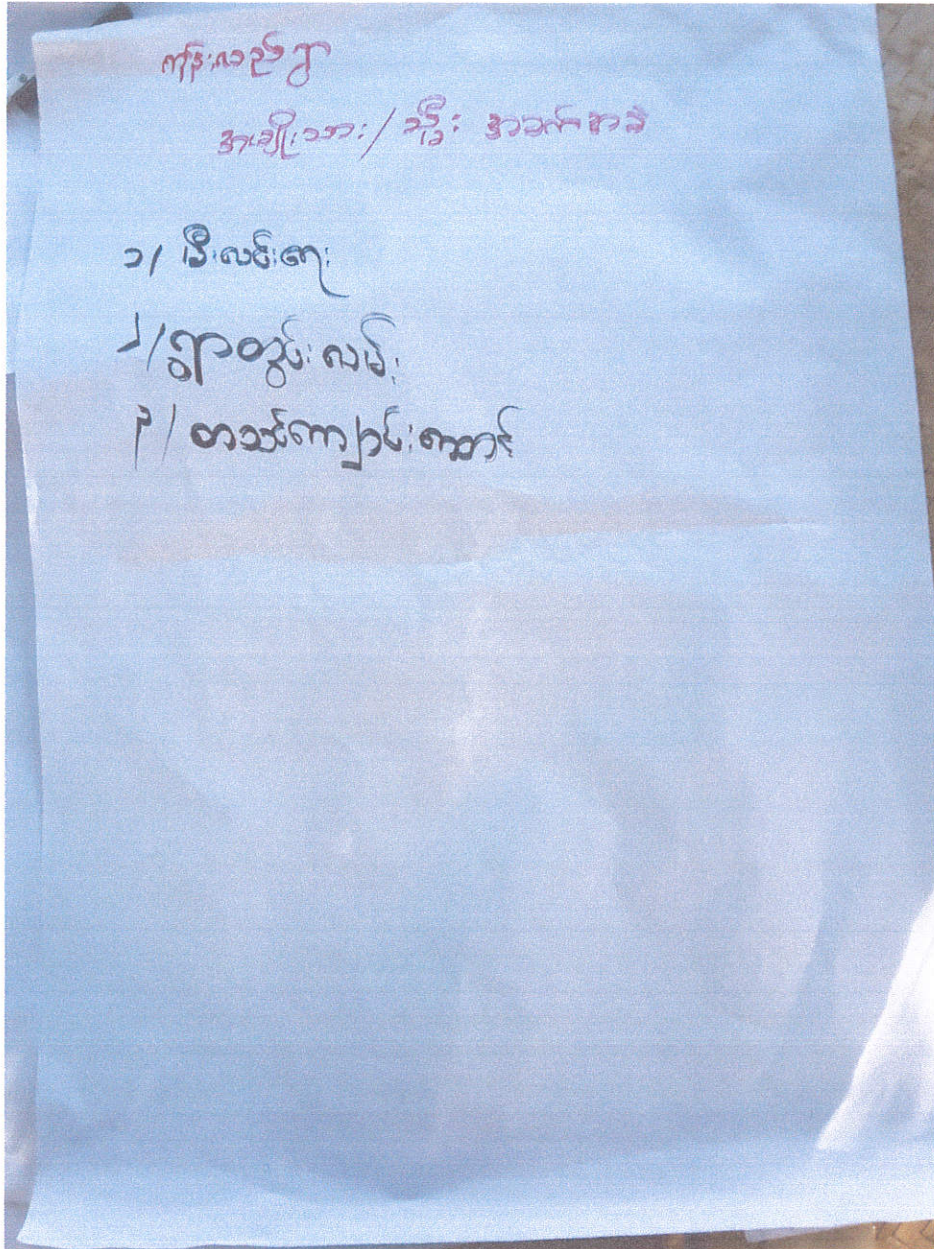 ကုန်းလည်ရွာ
အမျိုးသား/သမီး အခက်အခဲ
၁/ မီးလင်းရေး
၂/ ရွာတွင်းလမ်း
၃/ စာသင်ကျောင်းဆောင်